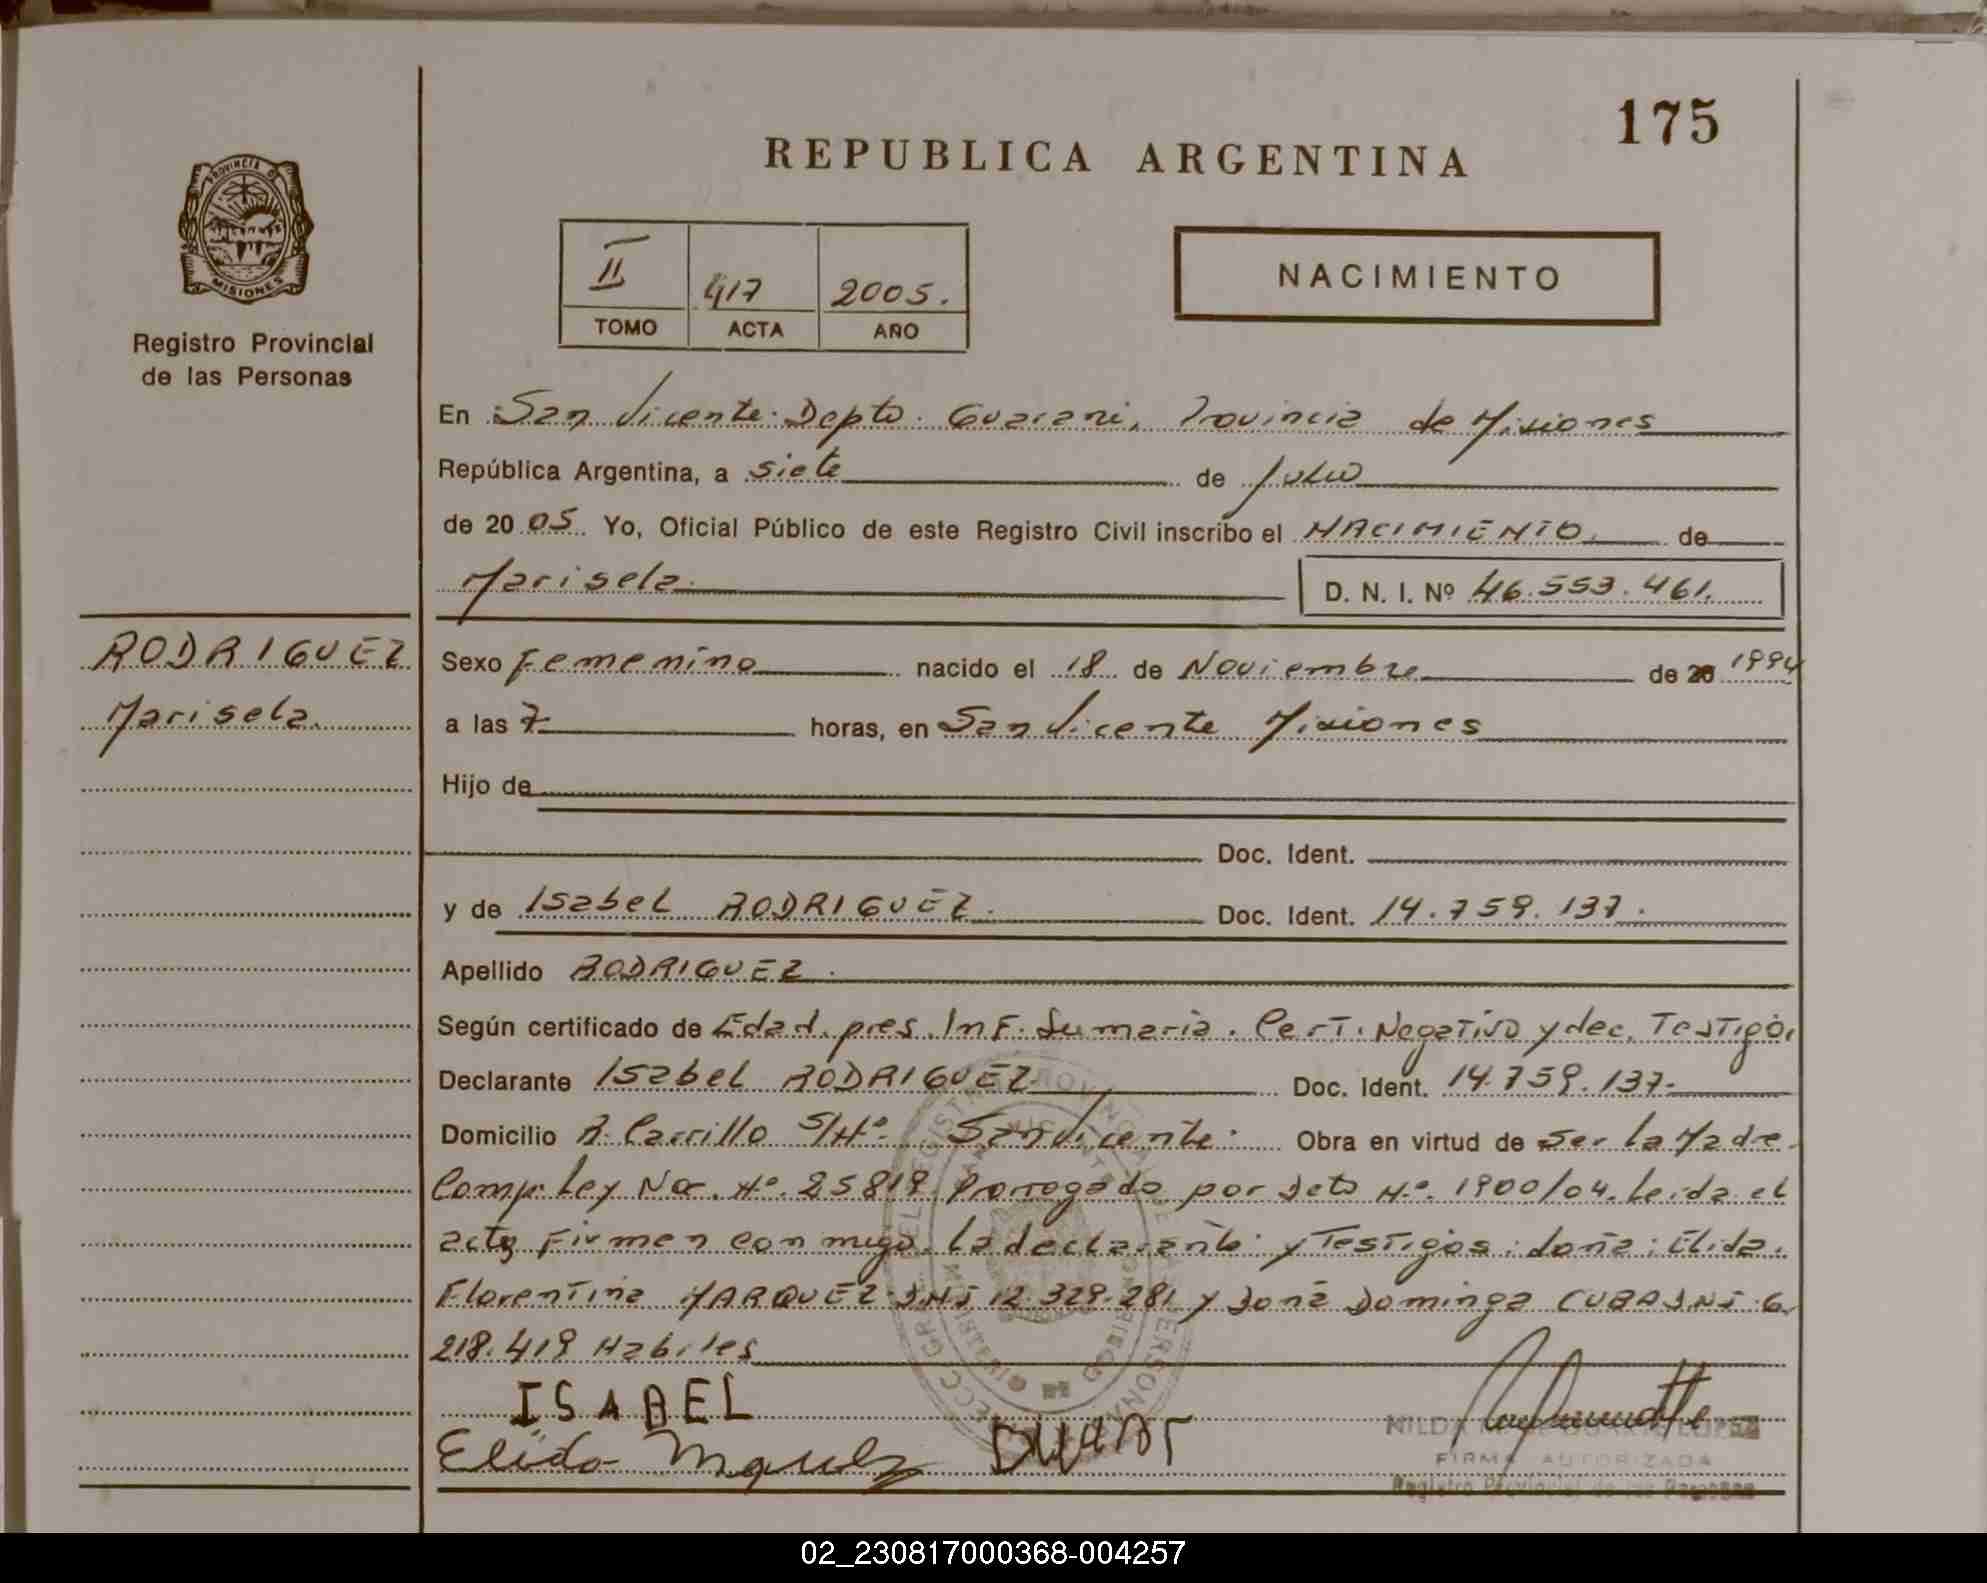 175
REPUBLICA ARGENTINA
PROVINCIA D
MISIONES
Registro Provincial
de las Personas
II 417 2005.
TOMO ACTA AÑO
NACIMIENTO
En San Vicente. Depto. Guarani, Provincia de Misiones
República Argentina, a siete de Julio
de 20 05 Yo, Oficial Público de este Registro Civil inscribo el NACIMIENTO de
Marisela D. N. I. Nº 46.553.461.
RODRIGUEZ
Marisela.
Sexo Femenino nacido el 18 de Noviembre de 20 1994
a las 7 horas, en San Vicente Misiones
Hijo de
Doc. Ident.
y de Isabel RODRIGUEZ. Doc. Ident. 14.759.137.
Apellido RODRIGUEZ.
Según certificado de Edad. pres. Inf. Sumaria. Cert. Negativo y dec. Testigos
Declarante Isabel RODRIGUEZ Doc. Ident. 14.759.137-
Domicilio R. Carrillo S/Nº. San Vicente. Obra en virtud de Ser la Madre.
Comp. Ley Nac. Nº. 25819. Prorrogado por Dcto Nº. 1900/04. Leida el
acta Firmen con migo. La declarante y Testigos: doña: Elida.
Florentina MARQUEZ DNI 12.329.281 y Doña Dominga CUBA DNI 6.
218.419 Habiles
ISABEL
Elida Marquez
NILDA
FIRMA AUTORIZADA
Registro Provincial de las Personas
02_230817000368-004257